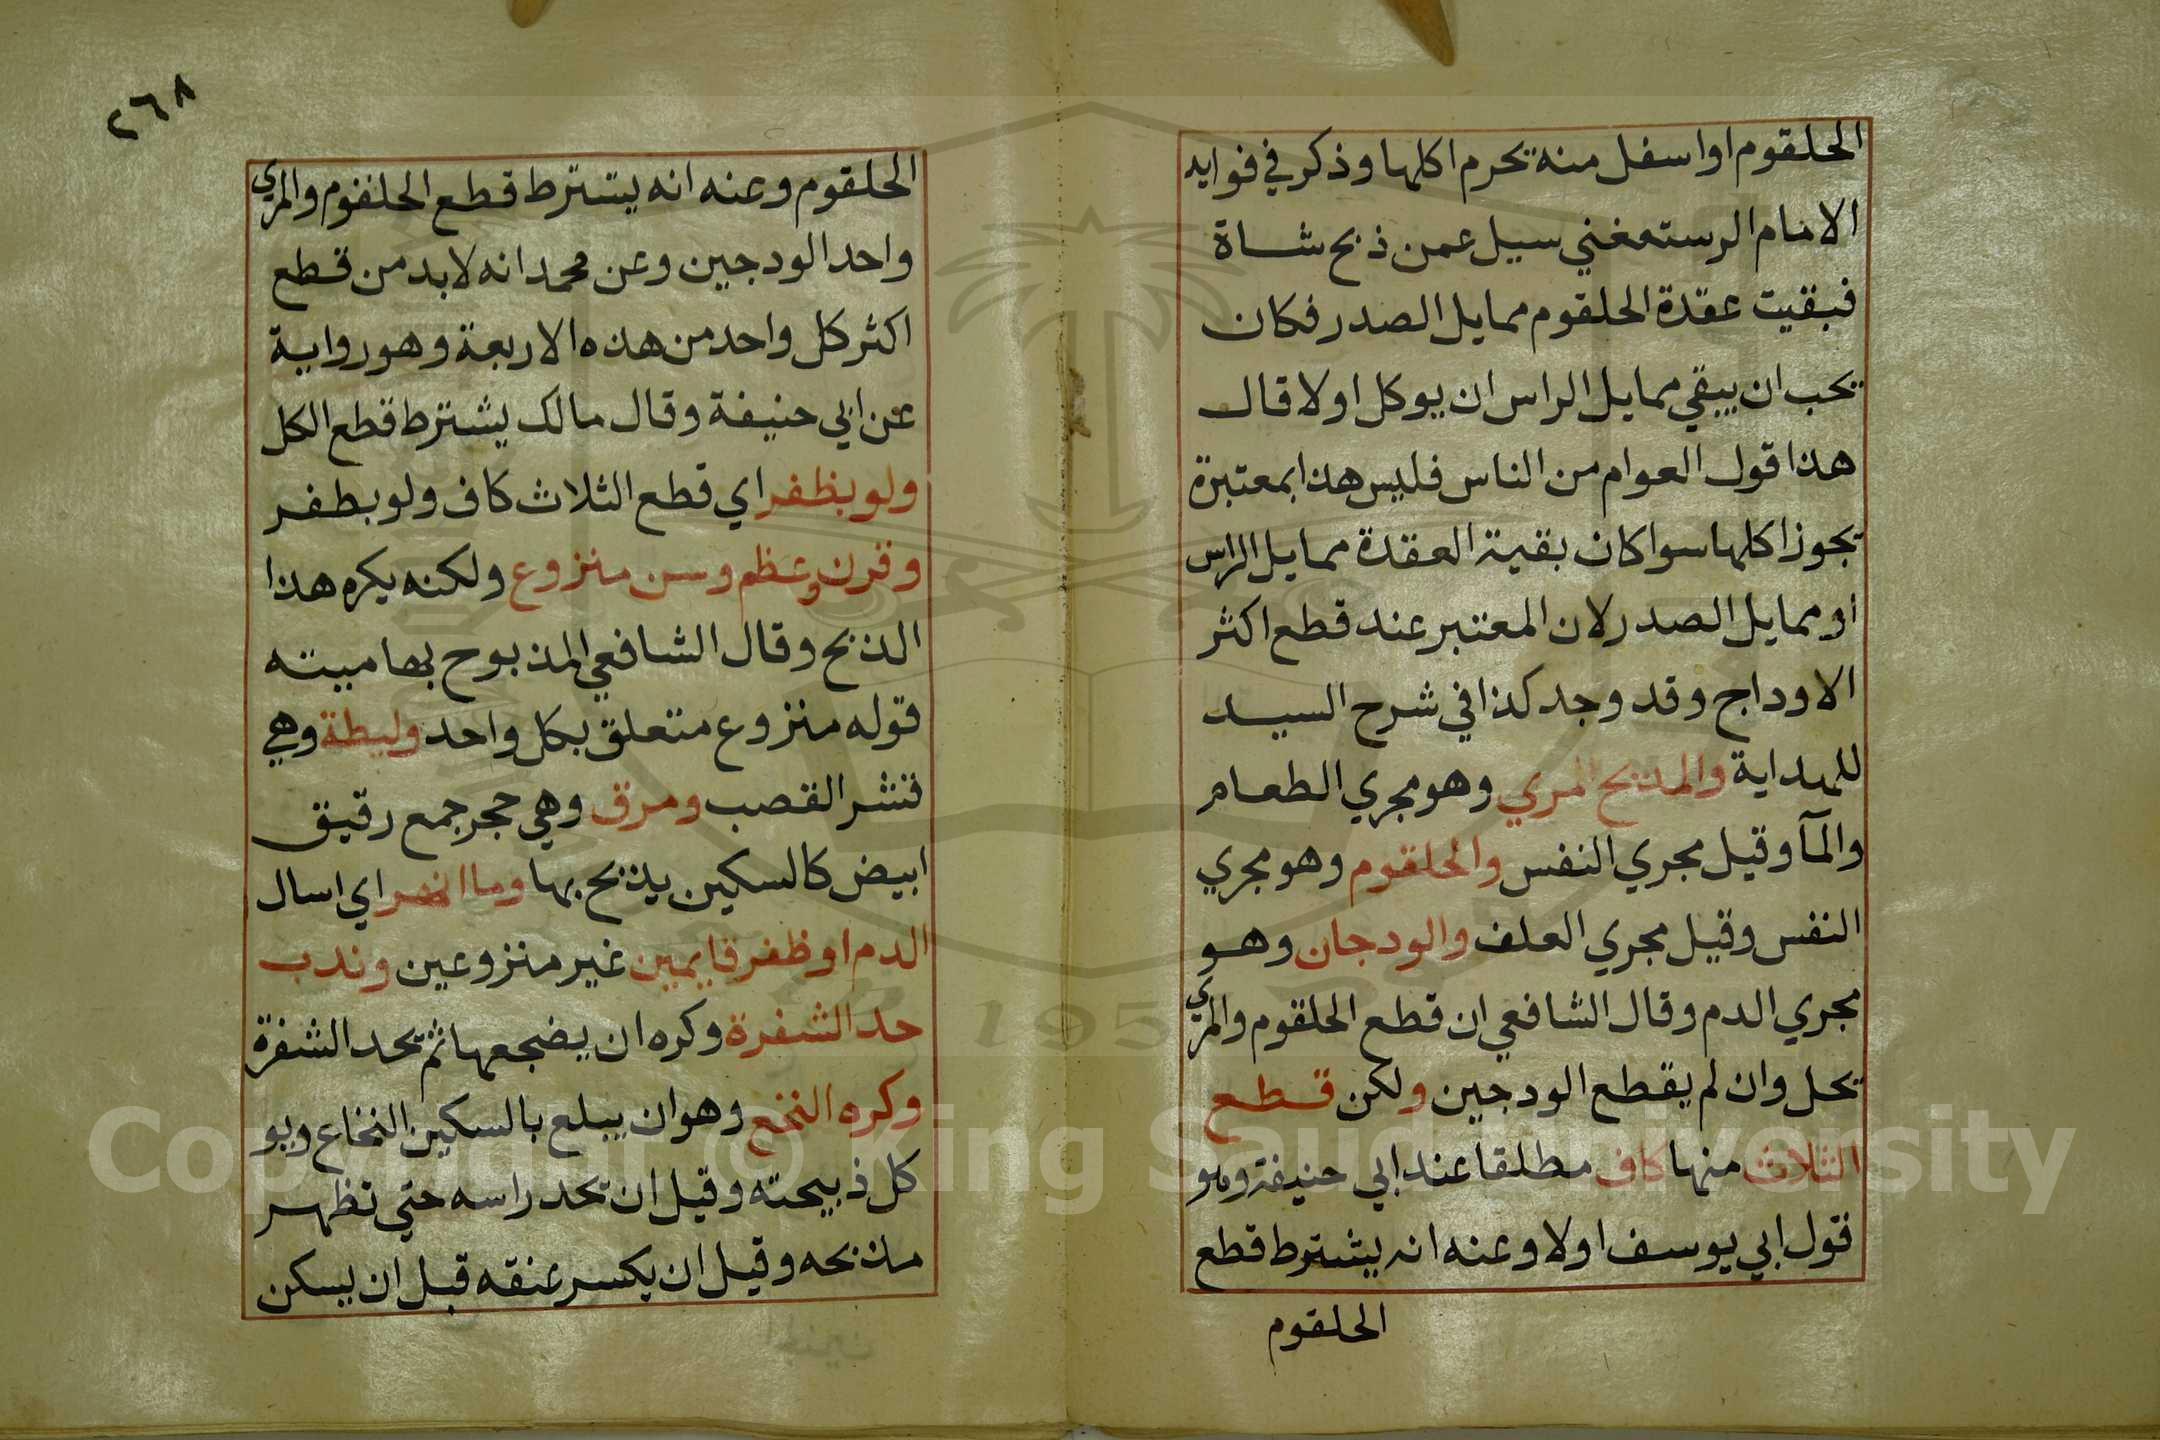 الحلقوم اواسفل منه تحرم اكلها وذكر في فوايد
الامام الرستمغني سيل عمن ذبح شاة
فبقيت عقدة الحلقوم ممايل الصدر فكان
تحب ان يبقي ممايل الراس ان يوكل اولا قال
هذا قول العوام من الناس فليس هذا بمعتبرة
تجوز اكلها سوا كان بقية العقدة ممايل الراس
او ممايل الصدر لان المعتبر عند قطع اكثر
الاوداج وقد وجد كذا في شرح السيد
للهداية والمذبح المري وهو مجري الطعام
والمآ وقيل مجري النفس والحلقوم وهو مجري
النفس وقيل مجري العلف والودجان وهو
مجري الدم وقال الشافعي ان قطع الحلقوم والمري
تحل وان لم يقطع الودجين ولكن قطع
الثلاث منها كاف مطلقا عند ابي حنيفة وهو
قول ابي يوسف اولا وعنه انه يشترط قطع
الحلقوم
٢٦٨
الحلقوم وعنه انه يشترط قطع الحلقوم والمري
واحد الودجين وعن محمد انه لابد من قطع
اكثر كل واحد من هذه الاربعة وهو رواية
عن ابي حنيفة وقال مالك يشترط قطع الكل
ولو بظفر اي قطع الثلاث كاف ولو بظفر
وقرن وعظم وسن منزوع ولكنه يكره هذا
الذبح وقال الشافعي المذبوح بها ميتة
قوله منزوع متعلق بكل واحد وليطة وهي
قشر القصب ومرق وهي حجر جمع رقيق
ابيض كالسكين يذبح بها وما انهر اي اسال
الدم او ظفر قايمين غير منزوعين وندب
حد الشفرة وكره ان يضجعها ثم تحد الشفرة
وكره النخع وهو ان يبلع بالسكين النخاع ويو
كل ذبيحته وقيل ان تحد راسه حتي تظهر
مذبحه وقيل ان يكسر عنقه قبل ان يسكن
Copyright © King Saud University
195